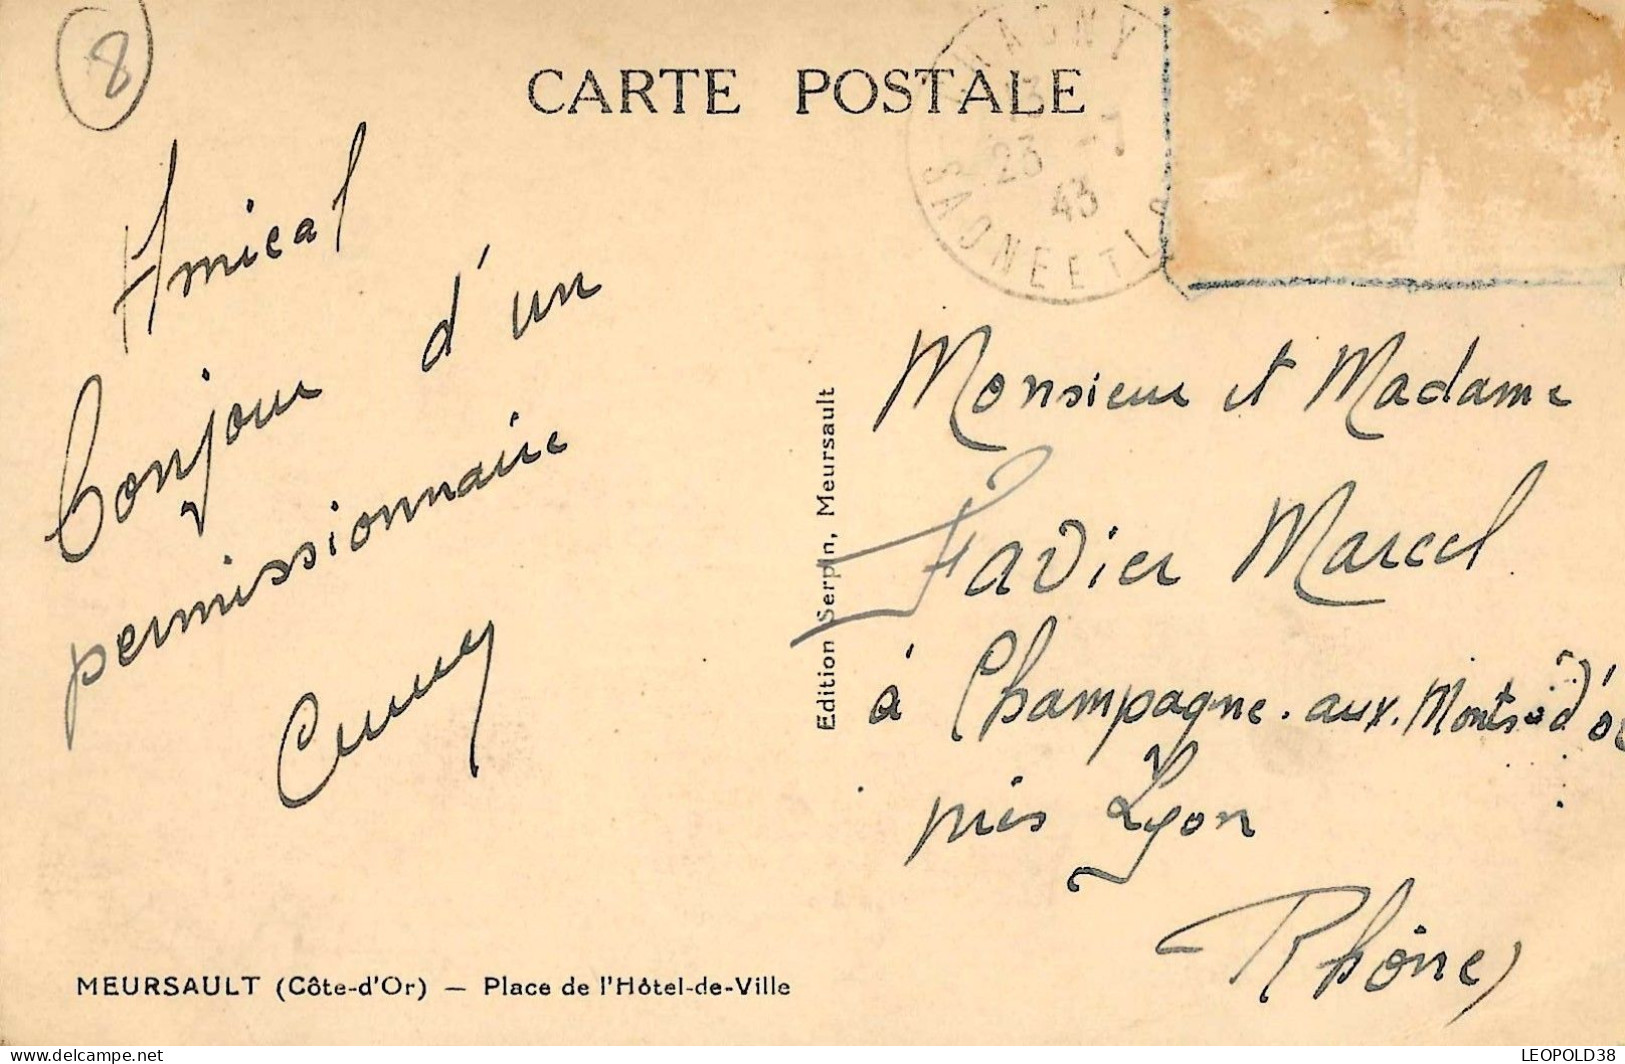 8
CARTE POSTALE
23 -7
43
SAONE ET L
Amical
bonjour d'un
permissionnaire
Edition Serpin, Meursault
Monsieur et Madame
Favier Marcel
à Champagne-aux-Monts-d'or
près Lyon
Rhône)
MEURSAULT (Côte-d'Or) — Place de l'Hôtel-de-Ville
delcampe.net
LEOPOLD38